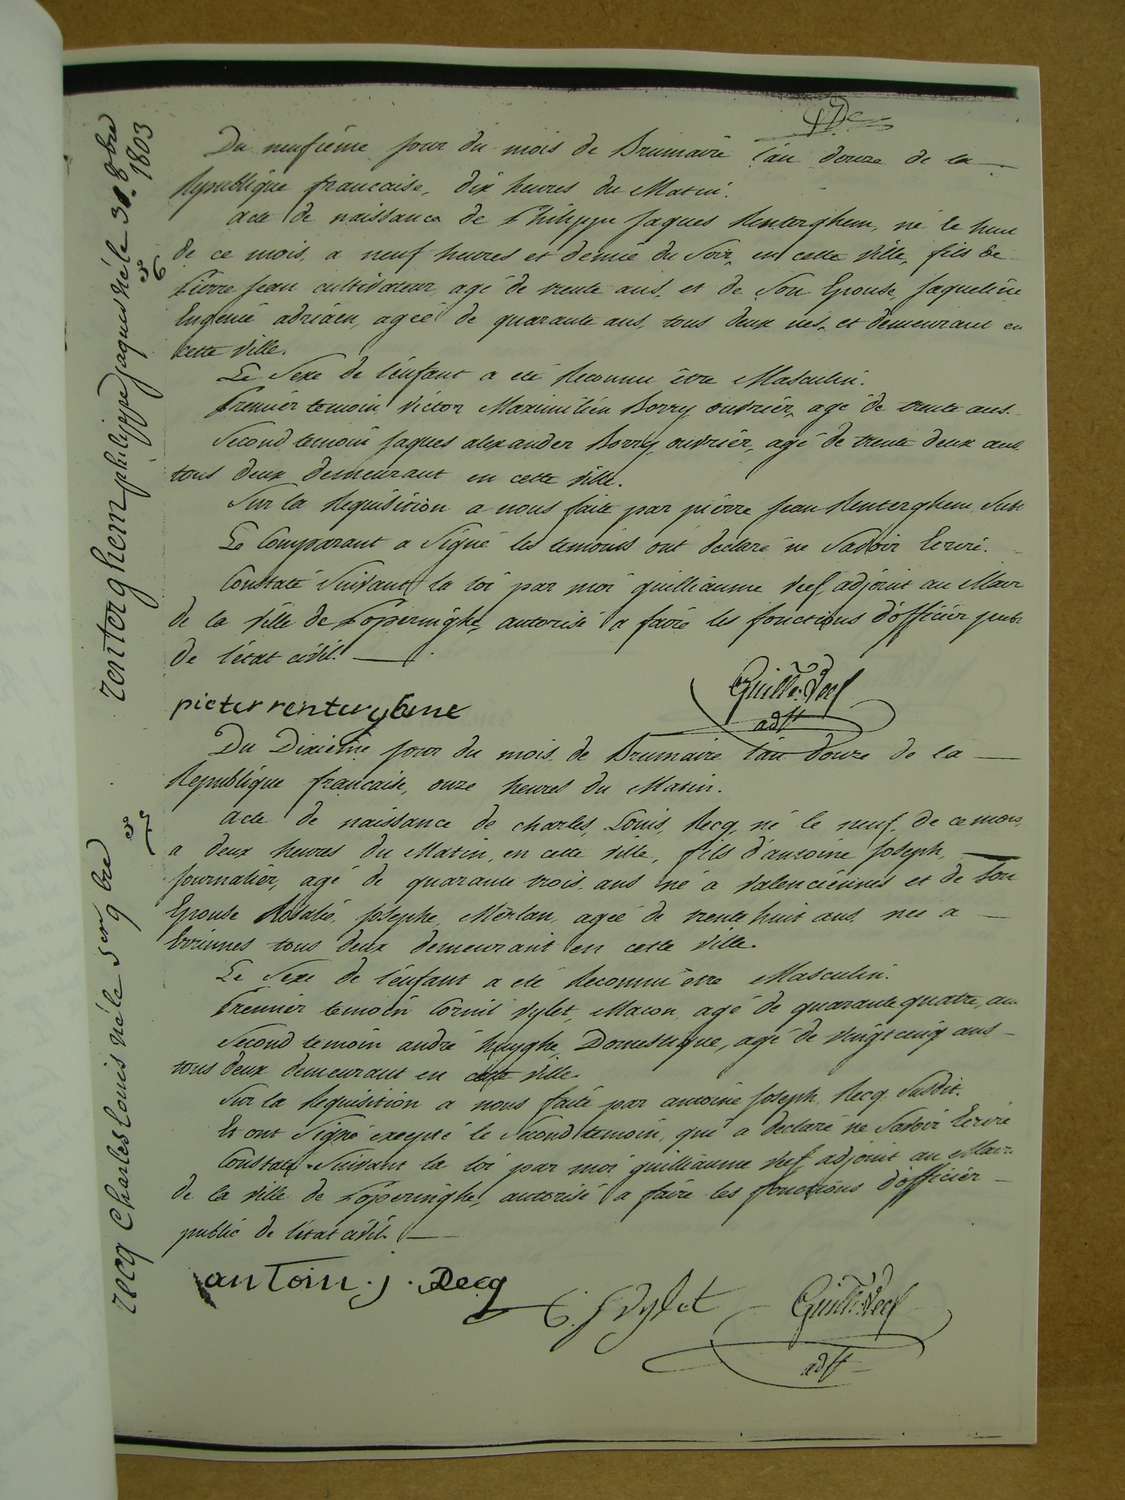 Du neufiéme jour du mois de Brumaire l'an douze de la
Republique francaise, dix heures du Matin.
acte de naissance de Philippe Jaques Renterghem, né le huit
de ce mois, a neuf heures et demie du Soir, en cette ville, fils de
Pierre Jean cultivateur agé de trente ans, et de Son Epouse, Jaqueline
Eugénie adriaen, ageé de quarante ans, tous deux nés, et demeurant en
cette ville.
Le Sexe de l'enfant a eté Reconnu être Masculin.
Premier temoin, Victor Maximilien Borry, ouvrier, agé de trente ans.
Second temoin Jaques alexander Borry, ouvrier, agé de trente deux ans
tous deux demeurant en cette ville.
Sur la Requisition a nous faite par pierre Jean Renterghem Susd
Le Comparant a Signé les temoins ont declaré ne Savoir Ecrire.
Constaté Suivant la loi par moi guilliaume Veef, adjoint au Maire
de la ville de Poperinghe, autorisé a faire les fonctions d'officier publ
de l'état civil.
pieter renterghem
Guille. Veef
adjt
Du Dixième jour du mois de Brumaire l'an douze de la
Republique française, onze heures du Matin.
Acte de naissance de charles, Louis, Recq, né le neuf, de ce mois,
a deux heures du Matin, en cette ville, fils d'antoine Joseph,
journalier, agé de quarante trois ans né a Valenciennes et de Son
Epouse Rosalie, Josephe, Merlan, ageé de trente huit ans, neé a
tous deux demeurant en cette ville.
Le Sexe de l'enfant a eté Reconnu être Masculin.
Premier temoin Cornil Vylet, Macon, agé de quarante quatre, ans
Second temoin andré huyghe, Domestique, agé de vingt cinq ans
tous deux demeurant en cette ville.
Sur la Requisition a nous faite par antoine Joseph Recq Susdit.
Et ont Signé excepté le Second temoin, qui a declaré ne Savoir Ecrire
Constaté Suivant la loi par moi guilliaume Veef, adjoint au Maire
de la ville de Poperinghe, autorisé a faire les fonctions d'officier
public de l'état civil.
antoin. j. Recq
Guille. Veef
adjt
renterghem philippe jaques né le 30 8bre
1803
recq Charles Louis né le 9 bre